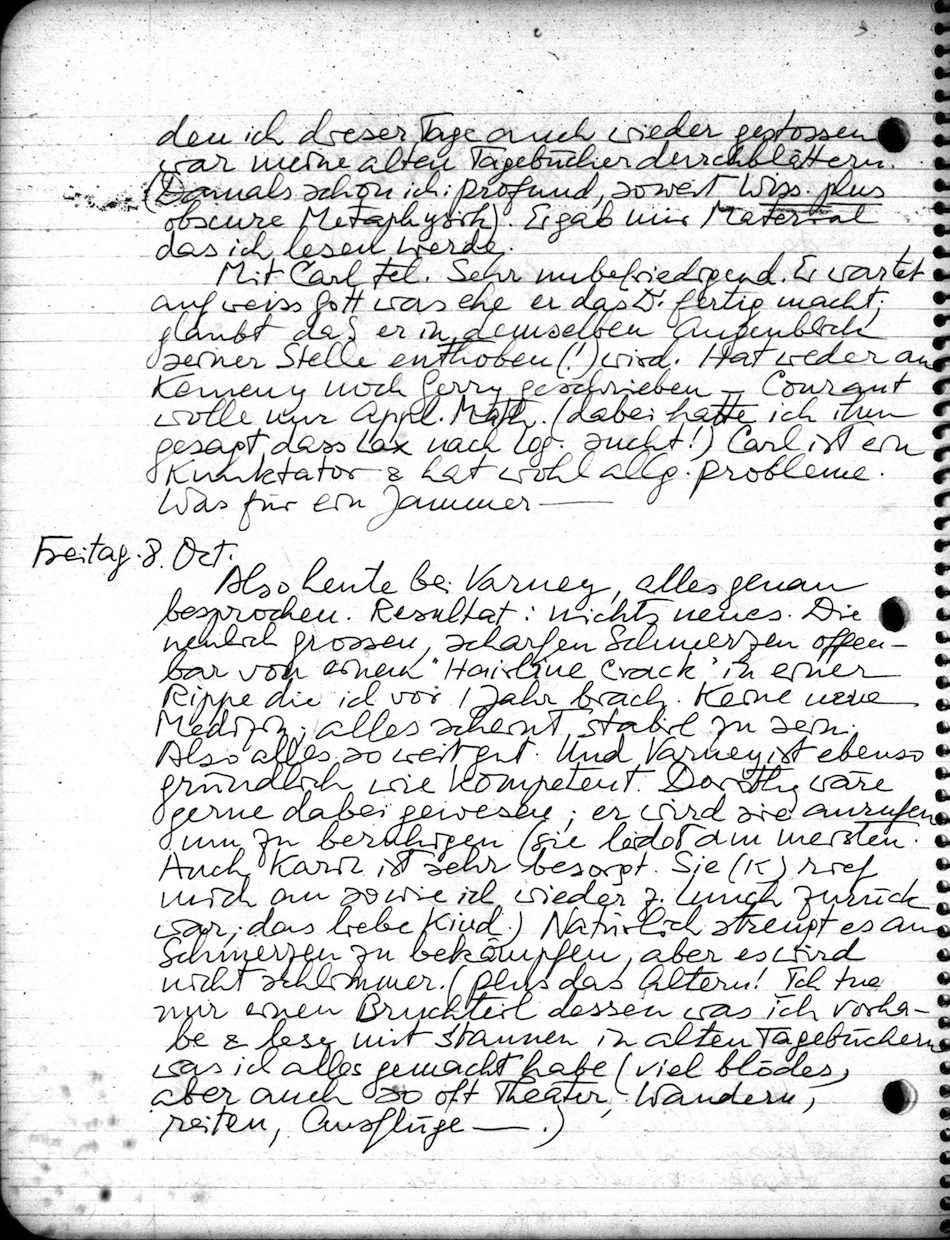 den ich dieser Tage auch wieder gestossen
war meine alten Tagebücher durchblättern.
(Damals schon ich: profund, soweit Wiss. plus
obscure Metaphysik). Er gab mir Material
das ich lesen werde.
Mit Carl tel. Sehr unbefriedigend. Er wartet
auf weiss Gott was ehe er das D. fertig macht;
glaubt daß er in demselben Augenblick
seiner Stelle enthoben (!) wird. Hat weder an
Kemeny noch Gerry geschrieben – Courant
wolle nur Appl. Math. (dabei hatte ich ihm
gesagt dass Lax nach Log. sucht!) Carl ist ein
Kunktator & hat wohl allg. Probleme.
Was für ein Jammer —
Freitag. 8. Oct.
Also heute bei Varney, alles genau
besprochen. Resultat: nichts neues. Die
neulich grossen, scharfen Schmerzen offen-
bar von einem "Hairline Crack" in einer
Rippe die ich vor 1 Jahr brach. Keine neue
Medizin; alles scheint stabil zu sein.
Also alles so weit gut. Und Varney ist ebenso
gründlich wie kompetent. Dorothy wäre
gerne dabei gewesen; er wird sie anrufen
um zu beruhigen (sie leidet am meisten.
Auch Karin ist sehr besorgt. Sie (K) rief
mich an sowie ich wieder z. Lunch zurück
war, das liebe Kind.) Natürlich strengt es an
Schmerzen zu bekämpfen, aber es wird
nicht schlimmer. (plus das Altern! Ich tue
nur einen Bruchteil dessen was ich vorha-
be & lese mit Staunen in alten Tagebüchern
was ich alles gemacht habe (viel blödes,
aber auch so oft Theater, Wandern,
reiten, Ausflüge — .)